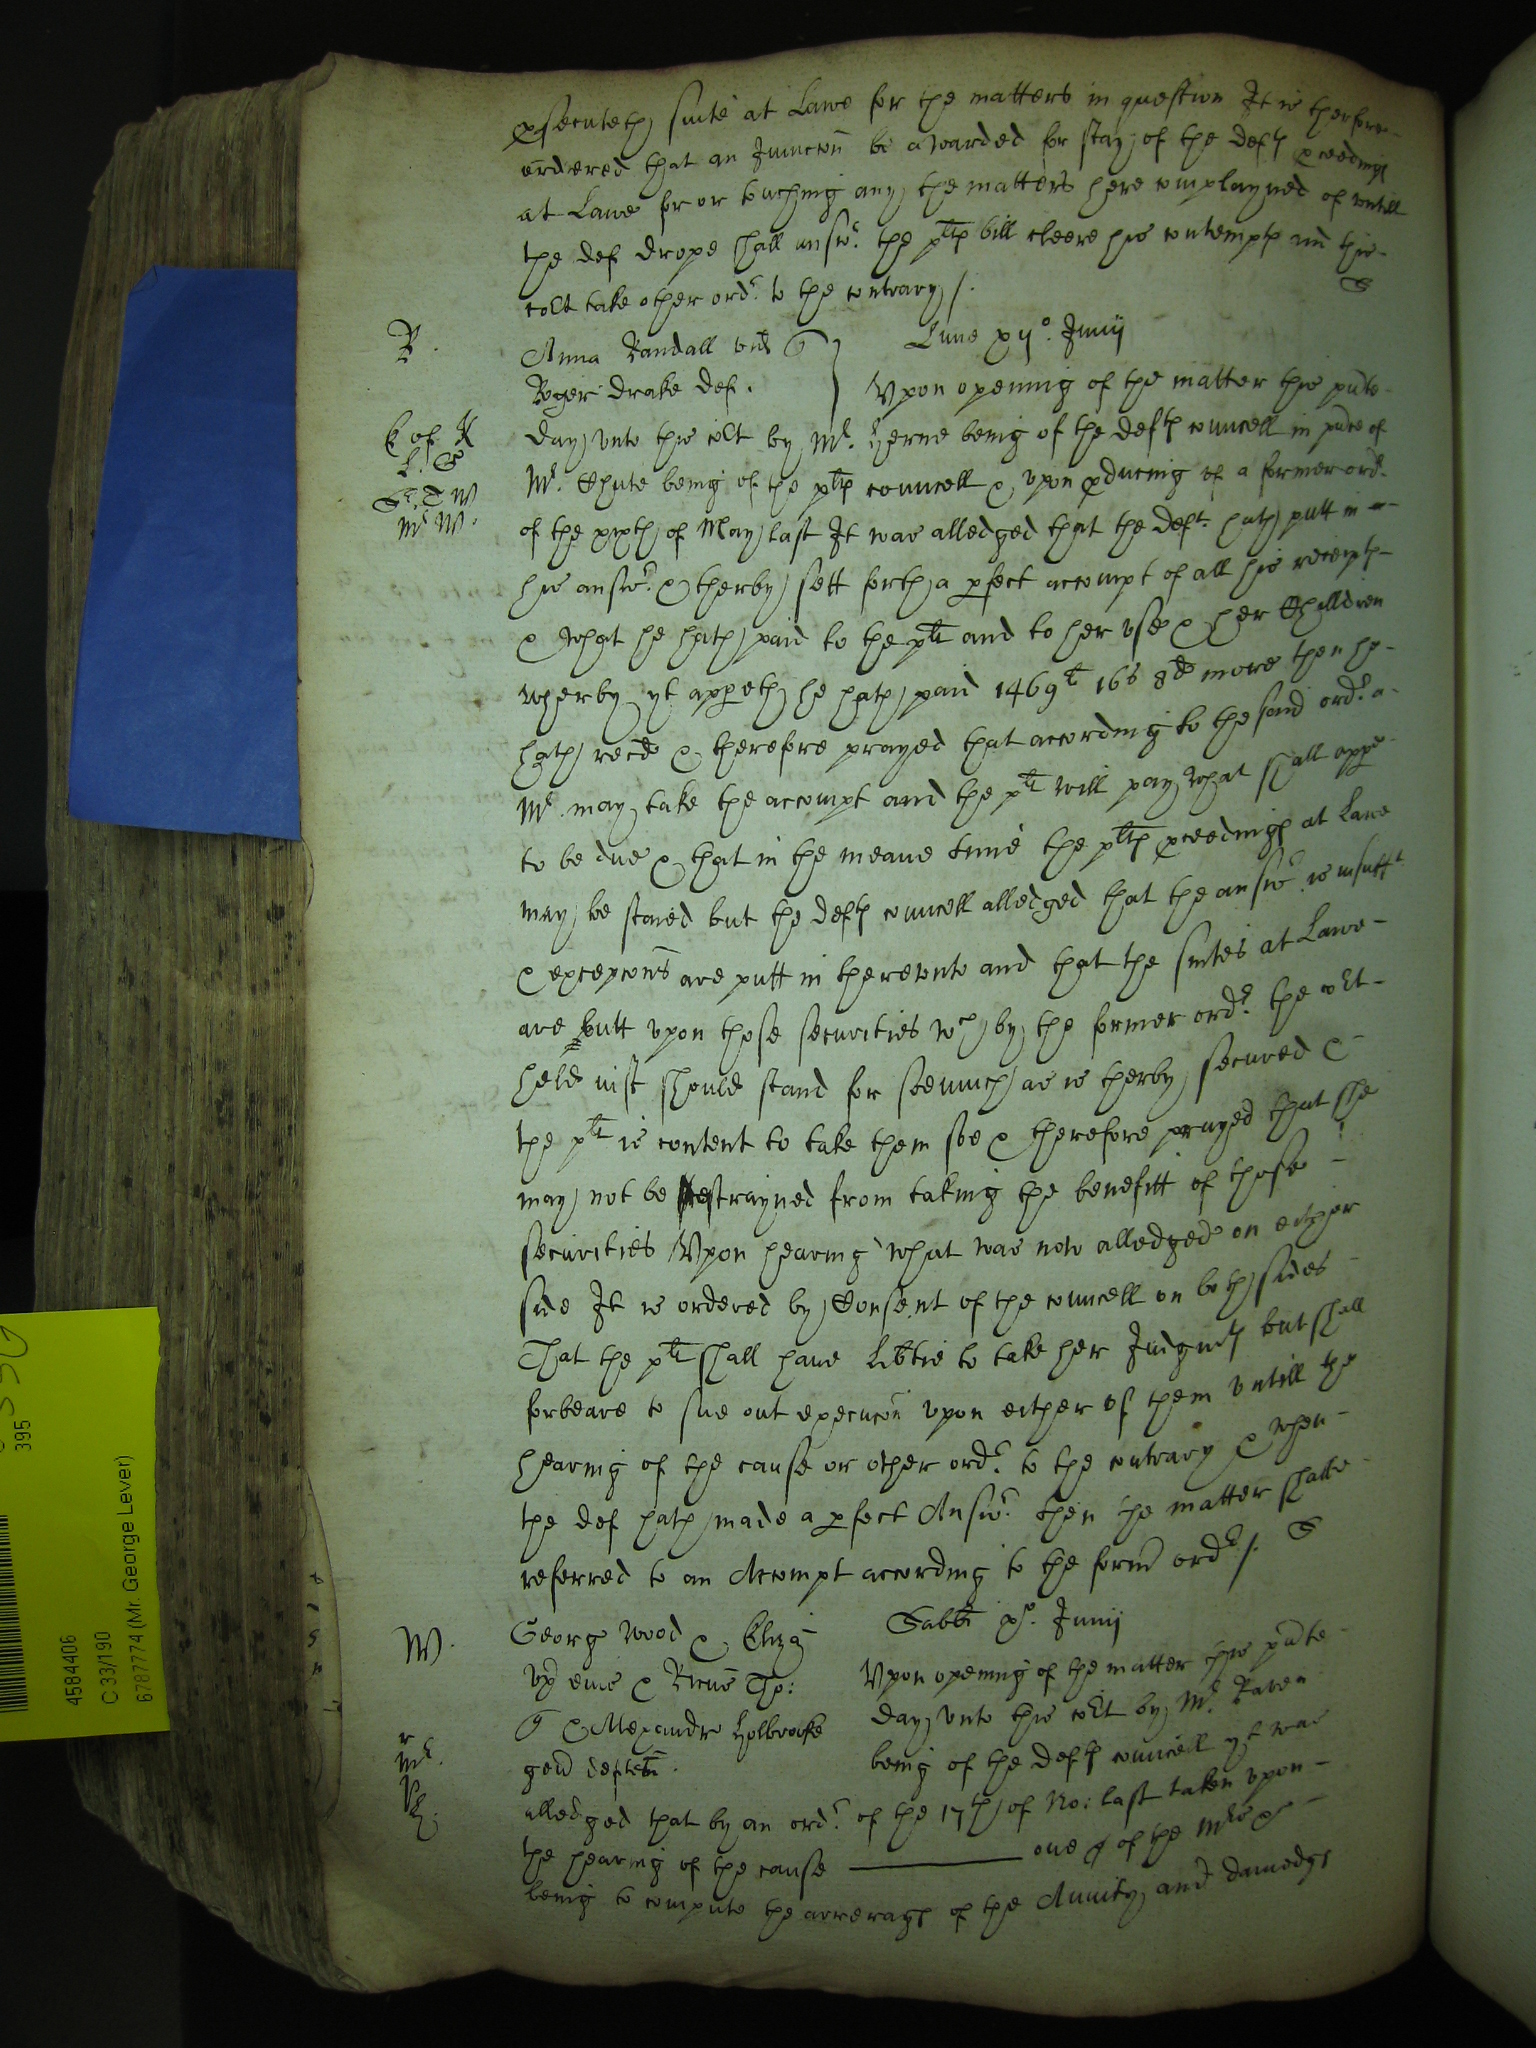 psecuteth suite at Lawe for the matters in question It is therfore
ordered that an Iniuncon be awarded for stay of the defts pceedings
at Lawe for or touching any the matters here complayned of untill
the def drope shall answr the pltfs bill cleere his contempts and this
cort take other ordr to the contrary /.
R.
Anna Randall wid
Roger drake def.
Lune xijo. Junij
Vpon openinig of the matter this pnte
K of K
day vnto this cort by Mr. Herne being of the defts councell in pnce of
Sr. T W
Mr W.
Mr. Chute being of the pltfs councell & vpon pducing of a former ordr
of the xixth of May last It was alledged that the deft. hath putt in
his answr. & therby sett forth a pfect accompt of all his receipts
& what he hath paid to the plt and to her vse & her Children
wherby yt appeth he hath paid 1469l 16s 8d more then he
hath recd & therefore prayed that according to the said ordr. a
Mr. may take the accompt and the plt will pay what shall appe
to be due & that in the meane time the pltfs pceedings at Lawe
may be staied but the defts councell alledged that the answr. is insufft
& excepcons are putt in therevnto and that the suites at Lawe
are butt vpon those securities wch by the former ordr. the cort
held iust should stand for soemuch as is therby secured &
the plt is content to take them soe & therefore prayed that she
may not be restrayned from taking the benefitt of those
securities Vpon hearing what was now alledged on either
side It is ordered by Consent of the councell on both sides
That the plt shall haue Libtie to take her Iudgmts but shall
forbeare to sue out execucon vpon either of them vntill the
hearing of the cause or other ordr. to the contrary & when
the def hath made a pfect Answr. then the matter shalbe
referred to an Accompt according to the formr ordr /.
W.
Georg Wood & Eliza
vx eius & Ricus Tho:
& Alexandr Holbrooke
gen defltes.
Sabbi xo. Junij
Vpon opening of the matter this pnte
day vnto this cort by Mr. Raven
being of the defts councell yt was
Mr.
alledged that by an ordr. of the 17th of No: last taken vpon
the hearing of the cause one of the Mrs
being to compute the arrerags of the Anuity and damedgs
395
4584406
C 33/190
6787774 (Mr. George Lever)